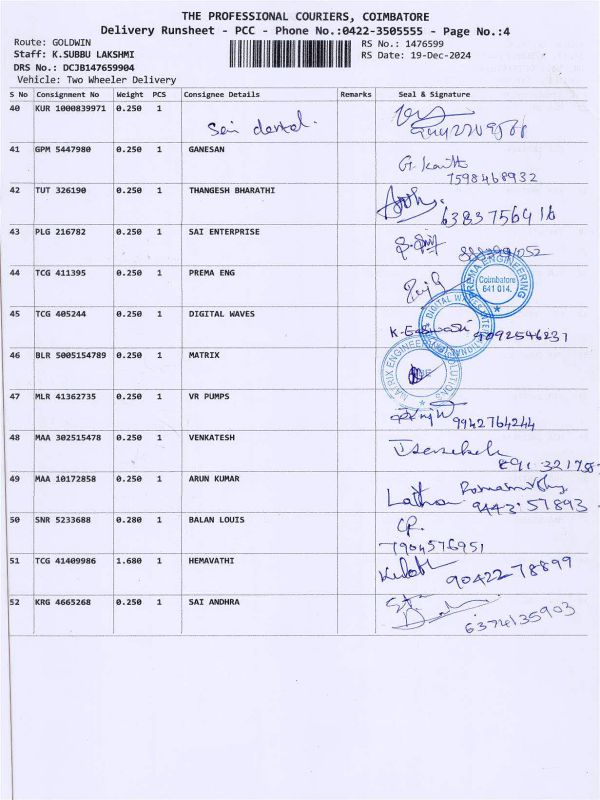 THE PROFESSIONAL COURIERS, COIMBATORE
Delivery Runsheet - PCC - Phone No.:0422-3505555 - Page No.:4
Route: GOLDWIN RS No.: 1476599
Staff: K.SUBBU LAKSHMI RS Date: 19-Dec-2024
DRS No.: DCJB147659904
Vehicle: Two Wheeler Delivery
S No Consignment No Weight PCS Consignee Details Remarks Seal & Signature
40 KUR 1000839971 0.250 1 Sai dental.
41 GPM 5447980 0.250 1 GANESAN
7598468932
42 TUT 326190 0.250 1 THANGESH BHARATHI
43 PLG 216782 0.250 1 SAI ENTERPRISE
44 TCG 411395 0.250 1 PREMA ENG
PREMA ENGINEERING
Coimbatore
641 014.
45 TCG 405244 0.250 1 DIGITAL WAVES
DIGITAL WAVES
9092546231
46 BLR 5005154789 0.250 1 MATRIX
MATRIX ENGINEERING SOLUTIONS
47 MLR 41362735 0.250 1 VR PUMPS
9942764244
48 MAA 302515478 0.250 1 VENKATESH
49 MAA 10172858 0.250 1 ARUN KUMAR
9443157893
50 SNR 5233688 0.280 1 BALAN LOUIS
7904576951
51 TCG 41409986 1.680 1 HEMAVATHI
90422-78899
52 KRG 4665268 0.250 1 SAI ANDHRA
6374135903